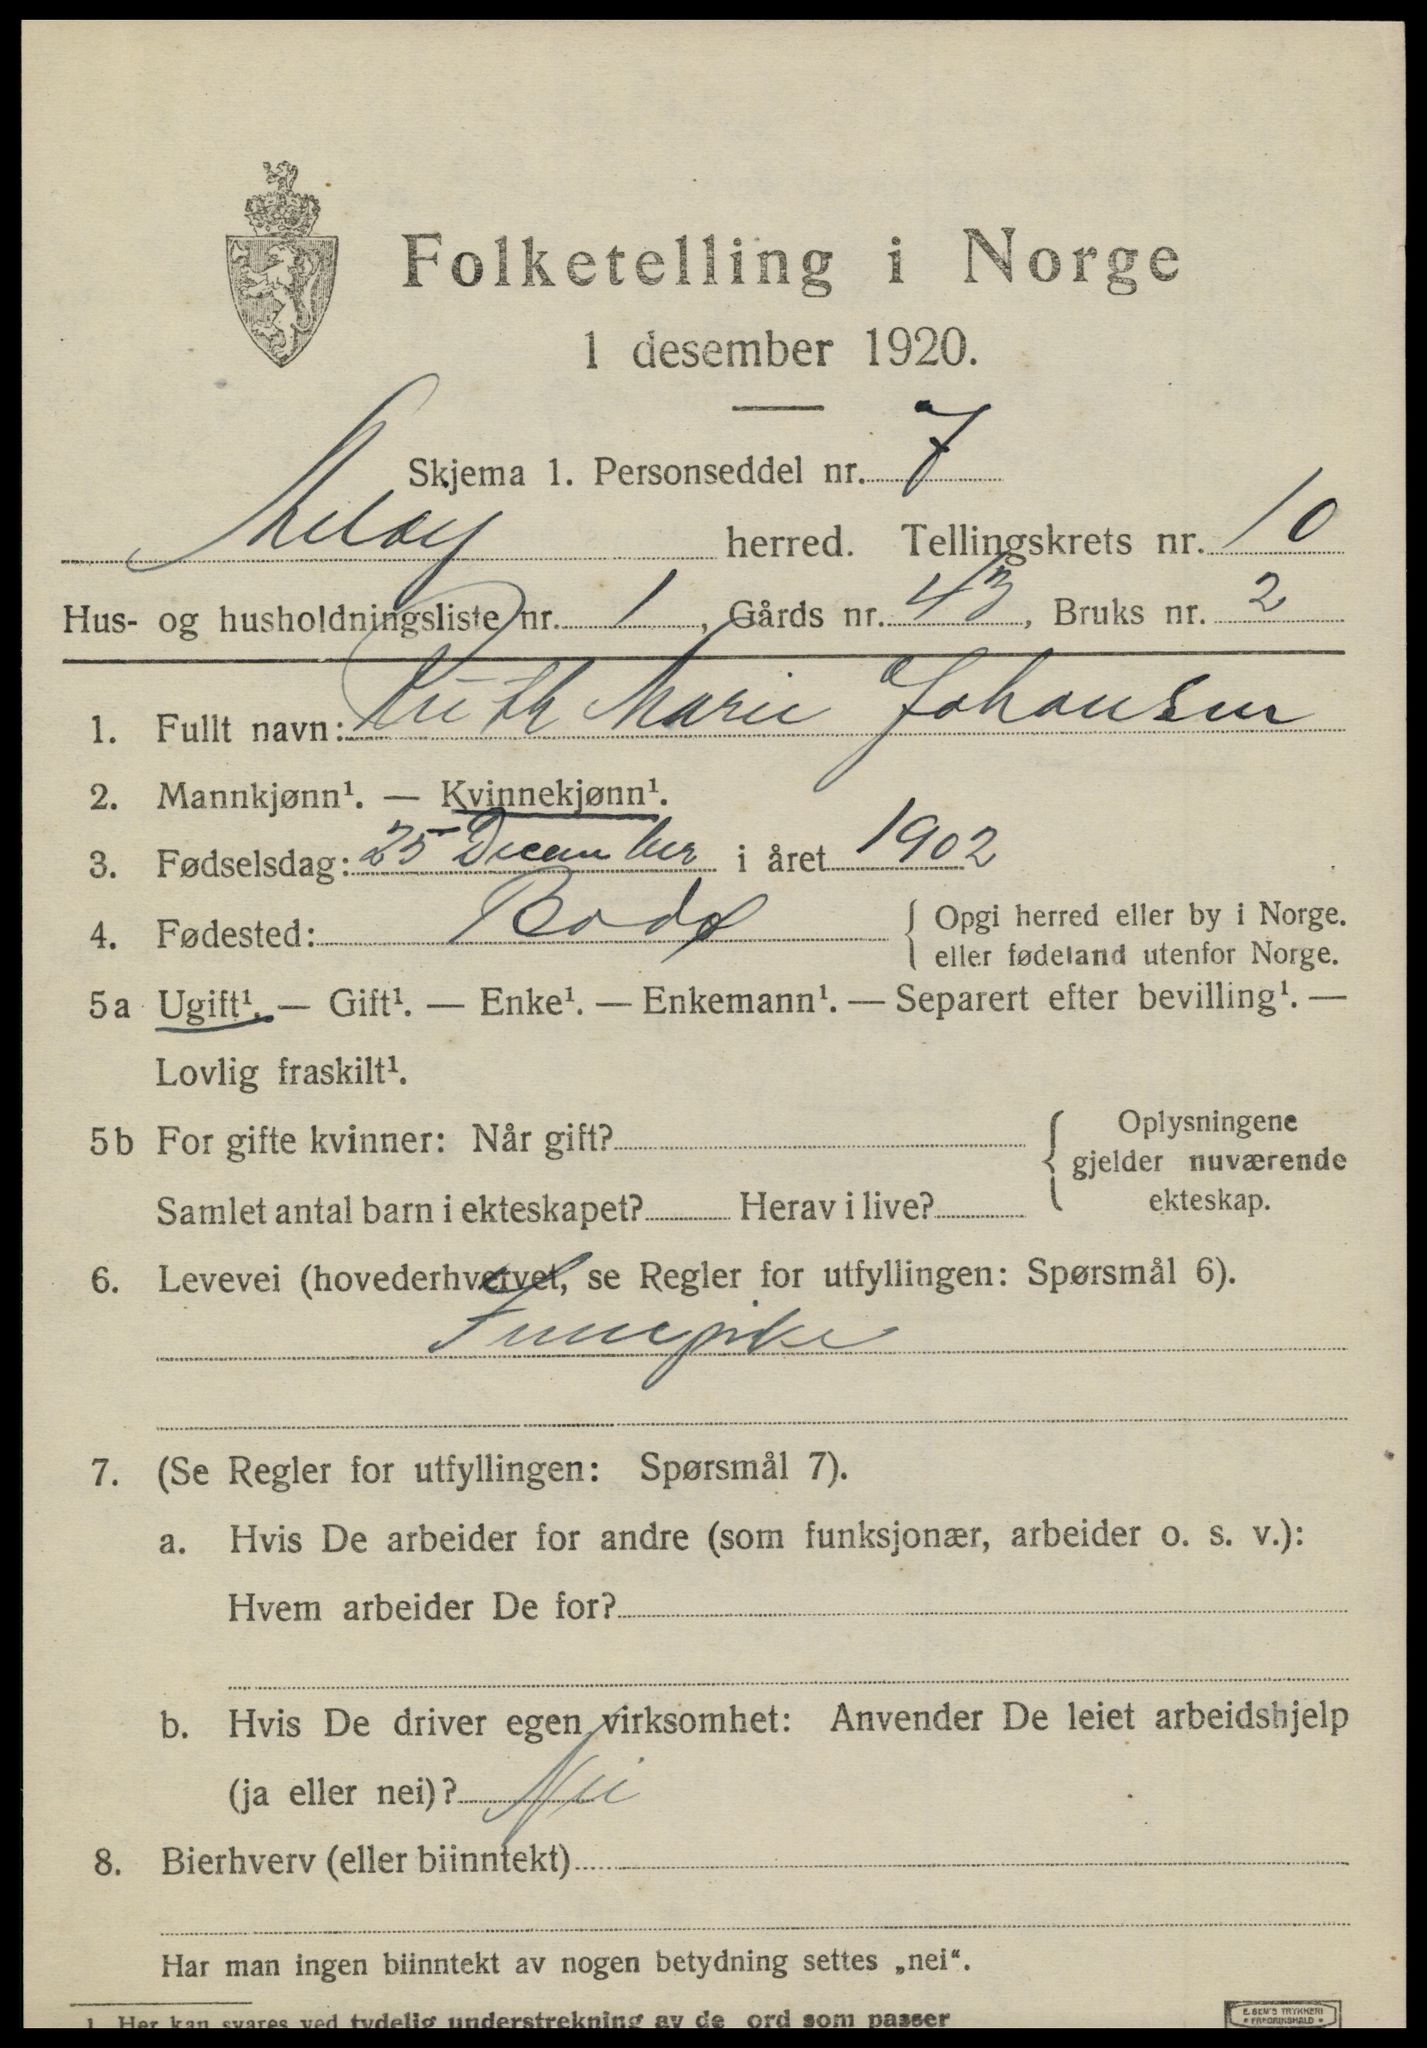 Folketelling i Norge
1 desember 1920.
Skjema 1. Personseddel nr. 7
Meløy herred. Tellingskrets nr. 10
Hus- og husholdningsliste nr. 1, Gårds nr. 43, Bruks nr. 2
1. Fullt navn: Ruth Marie Johansen
2. Mannkjønn¹. — Kvinnekjønn¹.
3. Fødselsdag: 25 December i året 1902
4. Fødested: Bodø { Opgi herred eller by i Norge.
eller fødeland utenfor Norge.
5a Ugift¹. — Gift¹. — Enke¹. — Enkemann¹. — Separert efter bevilling¹. —
Lovlig fraskilt¹.
5b For gifte kvinner: Når gift? { Oplysningene
gjelder nuværende
Samlet antal barn i ekteskapet? Herav i live? ekteskap.
6. Levevei (hovederhvervet, se Regler for utfyllingen: Spørsmål 6).
7. (Se Regler for utfyllingen: Spørsmål 7).
a. Hvis De arbeider for andre (som funksjonær, arbeider o. s. v.):
Hvem arbeider De for?
b. Hvis De driver egen virksomhet: Anvender De leiet arbeidshjelp
(ja eller nei)? Nei
8. Bierhverv (eller biinntekt)
Har man ingen biinntekt av nogen betydning settes „nei“.
1 Her kan svares ved tydelig understrekning av de ord som passer
E. SEM'S TRYKKERI
• FREDRIKSHALD •